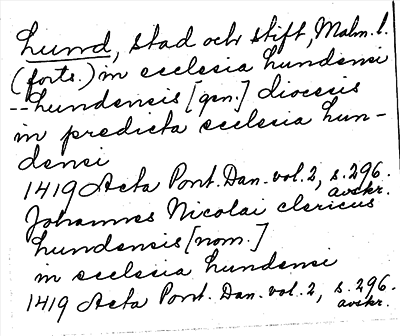 Lund, stad och stift, Malm. l.
(forts.) in ecclesia Lundensi
-- Lundensis [gen.] diocesis
in predicta ecclesia Lun-
densi
1419 Acta Pont. Dan. vol. 2, s. 296.
avskr.
Johannes Nicolai clericus
Lundensis [nom.]
in ecclesia Lundensi
1419 Acta Pont. Dan. vol. 2, s. 296.
avskr.